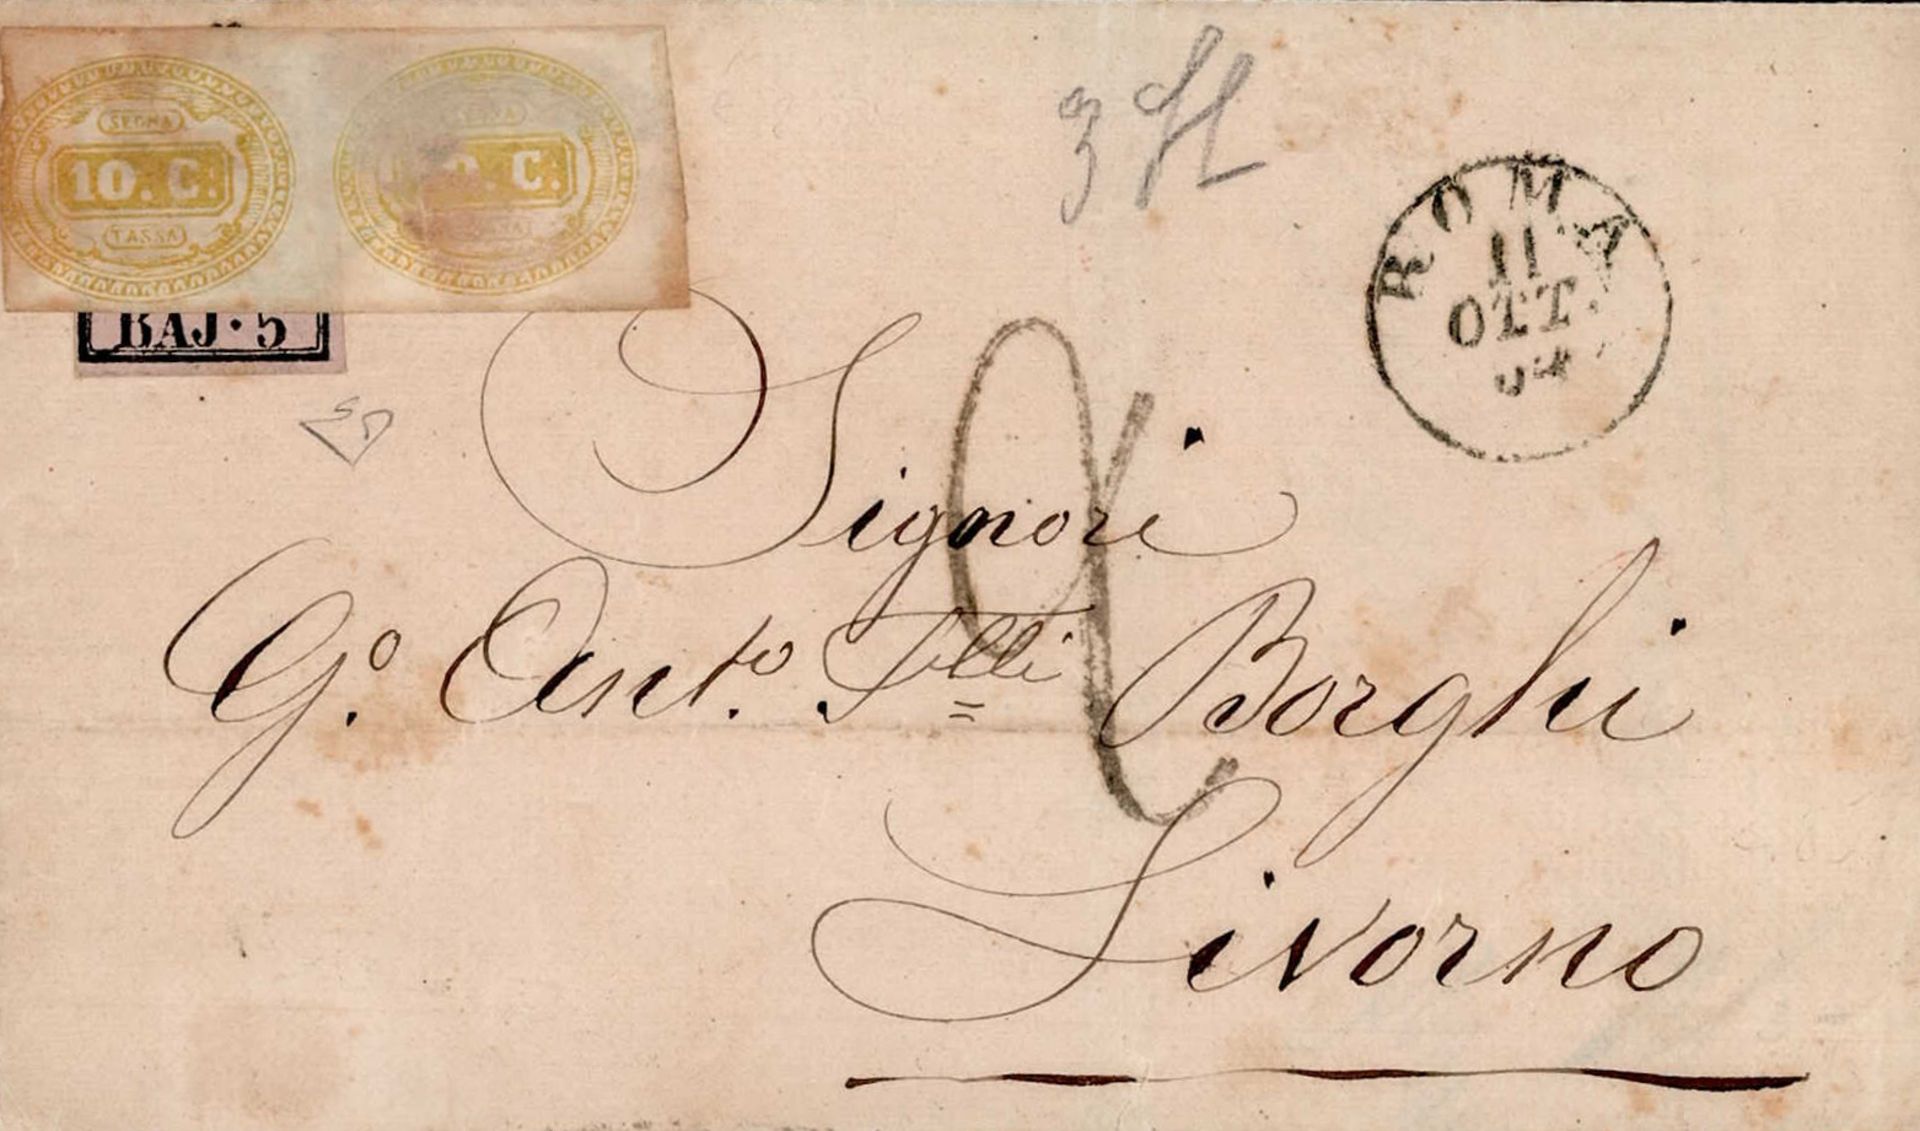 SEGNA
10. C.
TASSA
C.
BAJ · 5
ROMA
11
OTT.
Signori
G.o Ant.to F.lli Borghi
Livorno